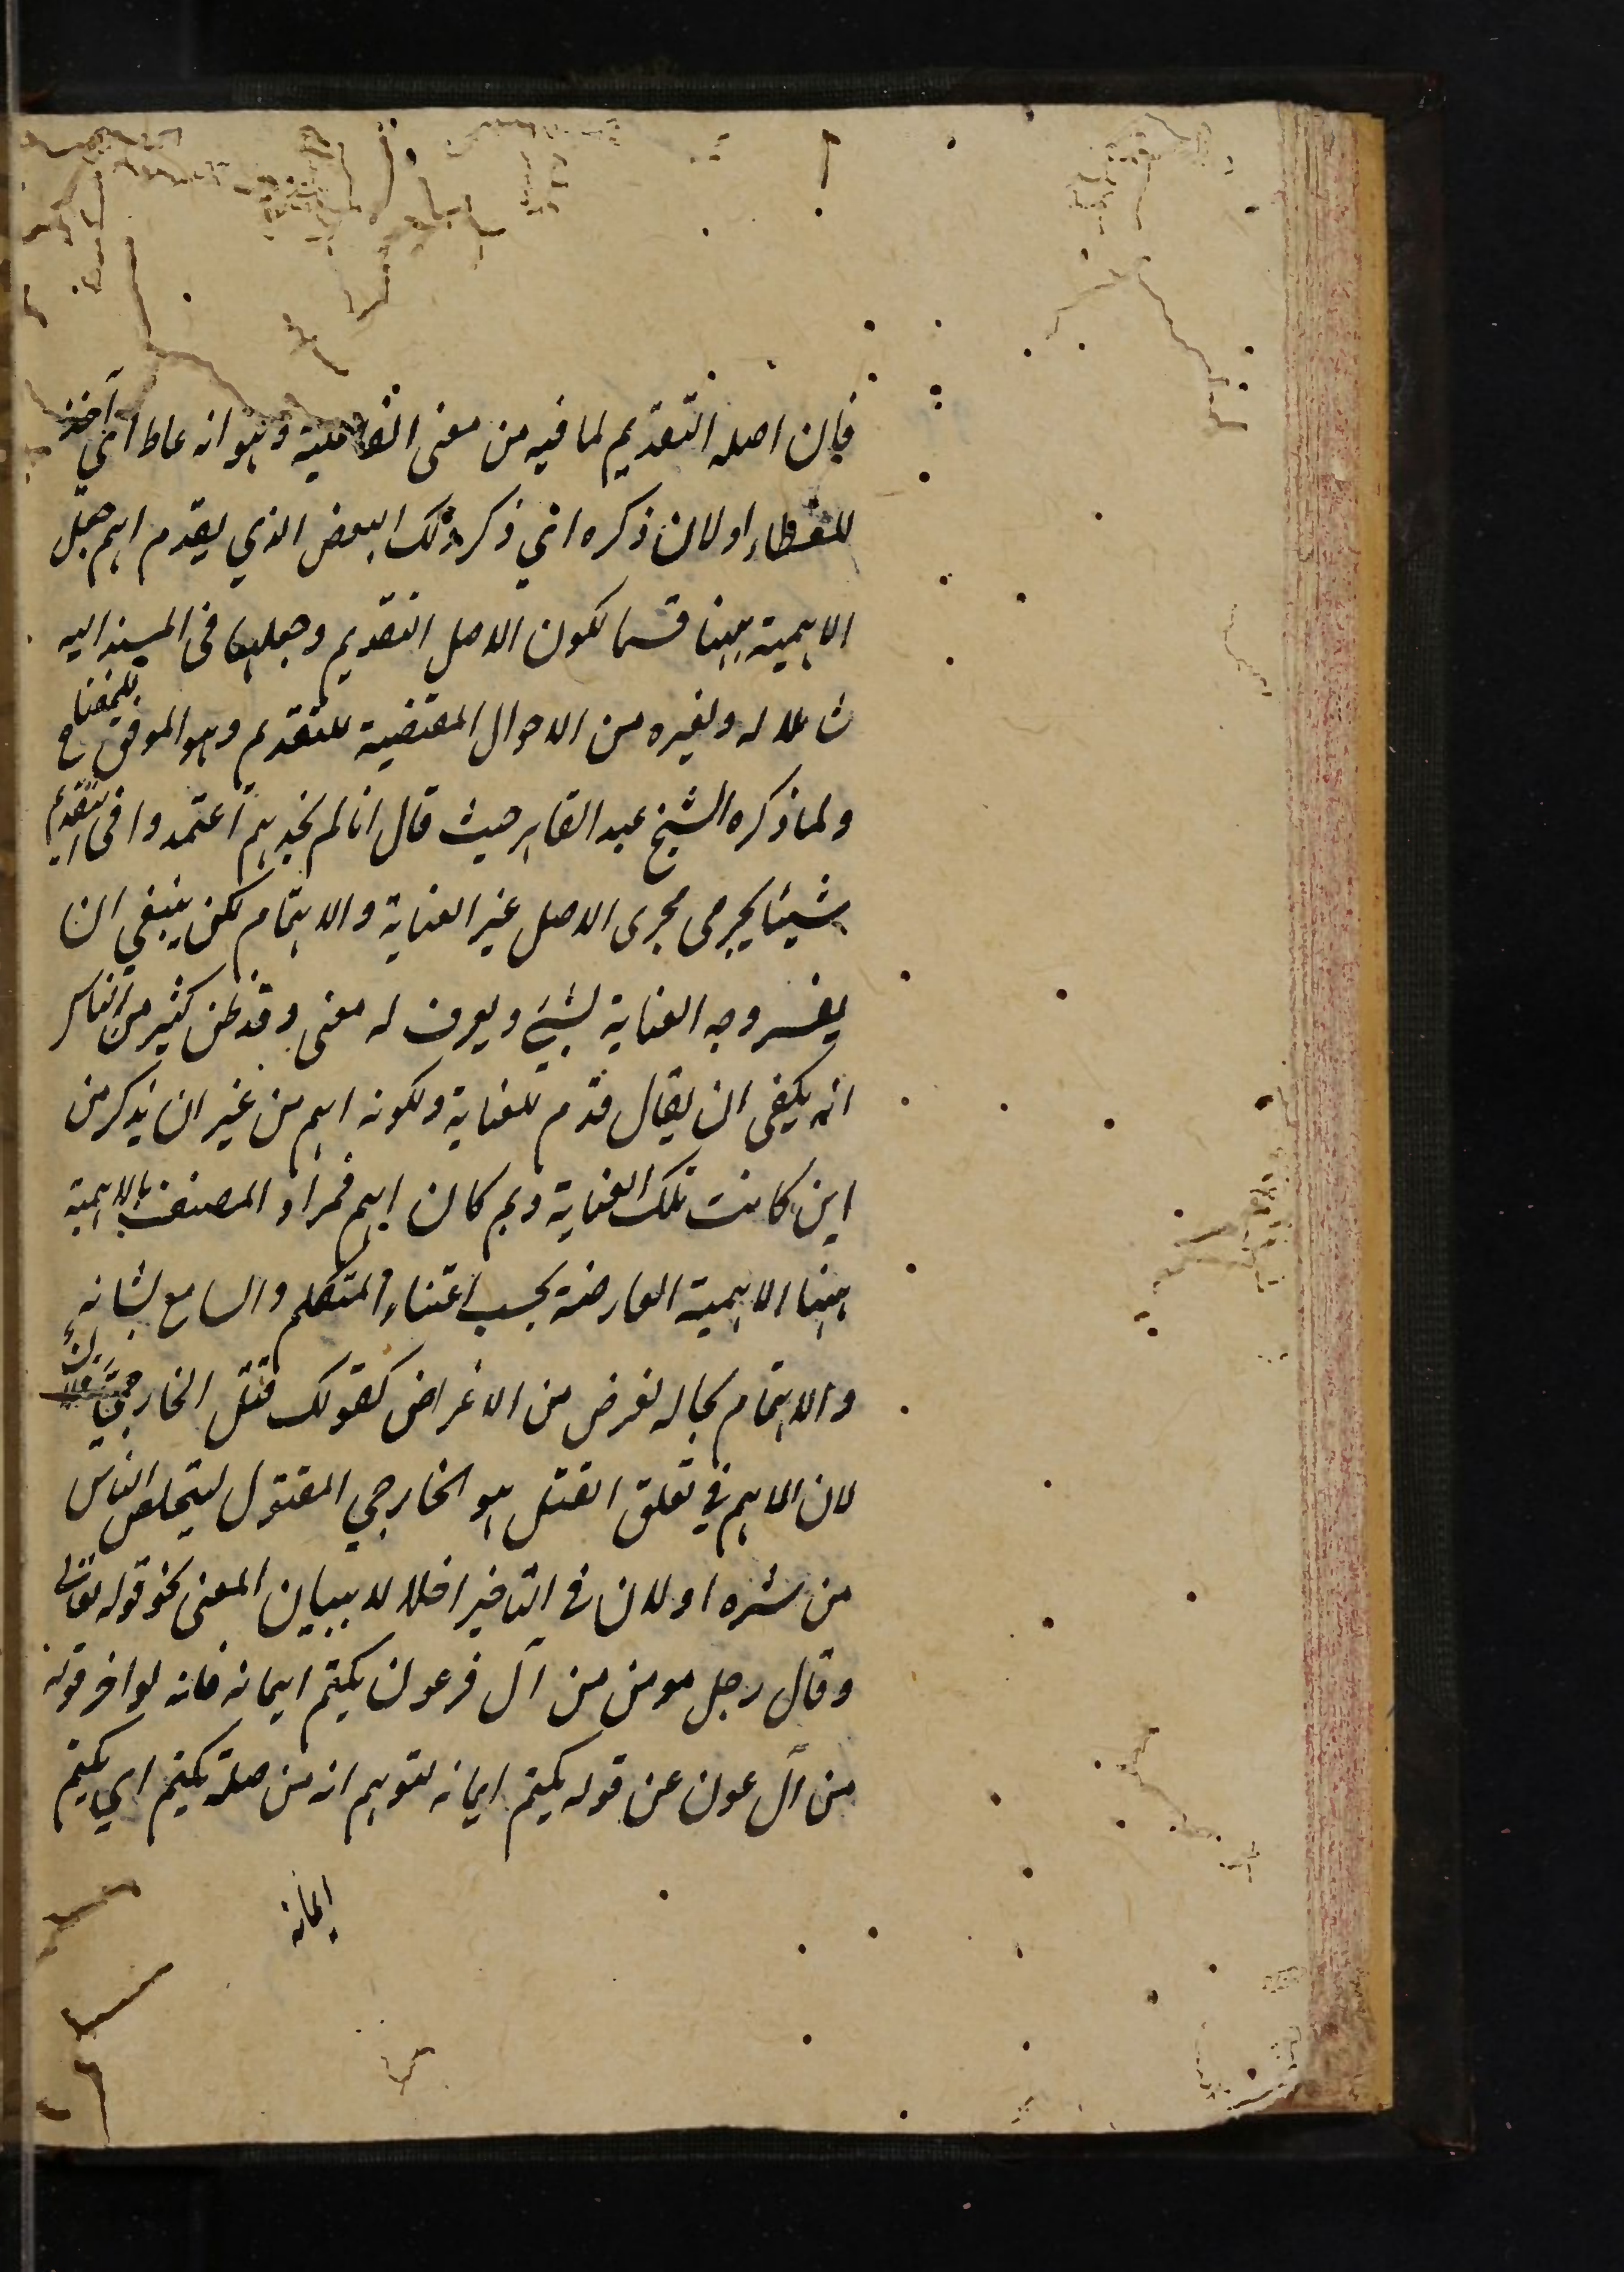 فإن اصله التقديم لما فيه من معنى الفاعلية وهو انه عاط اي آخذ
للعطاء او لان ذكره اي ذكر ذلك البعض الذي يقدم اهم جعل
الاهمية ههنا قسما لكون الاصل التقديم وجعلها في المسند اليه
شاملا له ولغيره من الاحوال المقتضية للتقديم وهو الموافق للمفتاح
ولما ذكره الشيخ عبد القاهر حيث قال انا لم نجدهم اعتمدوا في التقديم
شيئا يجري مجرى الاصل غير العناية والاهتمام لكن ينبغي ان
يفسر وجه العناية لشيء ويعرف له معنى وقد ظن كثير من الناس
انه يكفي ان يقال قدم للعناية ولكونه اهم من غير ان يذكر من
اين كانت تلك العناية وبم كان اهم فمراد المصنف بالاهمية
ههنا الاهمية العارضة بحسب اعتناء المتكلم والسامع بشانه
والاهتمام بحاله لغرض من الاغراض كقولك قتل الخارجيَّ فلان
لان الاهم في تعلق القتل هو الخارجي المقتول ليتخلص الناس
من شره او لان في التاخير اخلالا ببيان المعنى نحو قوله تعالى
وقال رجل مومن من آل فرعون يكتم ايمانه فانه لو اخر قوله
من آل عون عن قوله يكتم ايمانه لتوهم انه من صلة يكتم اي يكتم
ايمانه